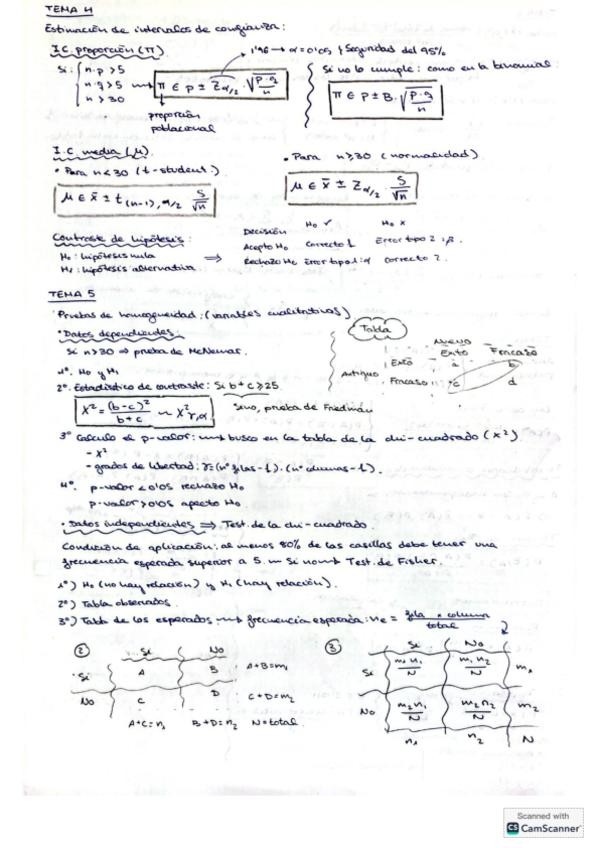 TEMA 4
Estimación de intervalos de confianza:
I.C. proporción (π)
1'96 → α = 0'05 y Seguridad del 95%
Si: { n·p > 5
n·q > 5
n > 30
π ∈ p ± Zα/2 · √(p·q/n)
proporción
poblacional
Si no lo cumple: como en la binomial:
π ∈ p ± B · √(p·q/n)
I.C. media (μ).
• Para n < 30 (t-student)
μ ∈ x̄ ± t(n-1), α/2 S/√n
• Para n ≥ 30 (normalidad)
μ ∈ x̄ ± Zα/2 · S/√n
Contraste de hipótesis:
H0: hipótesis nula
H1: hipótesis alternativa
⇒
Decisión H0 ✓ H0 x
Acepto H0 Correcto 1 Error tipo 2: β.
Rechazo H0 Error tipo 1: α Correcto 2.
TEMA 5
Pruebas de homogeneidad: (variables cualitativas)
• Datos dependientes:
Si n > 30 ⇒ prueba de McNemar.
Tabla
Nuevo
Éxito Fracaso
Antiguo
Éxito a b
Fracaso c d
1º. H0 y H1
2º. Estadístico de contraste: Si b + c ≥ 25.
X² = (b-c)²/b+c ~ X²r,α
Sino, prueba de Friedman
3º Calculo el p-valor: → busco en la tabla de la chi-cuadrado (x²)
- x²
- grados de libertad: r = (nº filas - 1) · (nº columnas - 1).
4º. p-valor < 0'05 rechazo H0
p-valor > 0'05 acepto H0.
• Datos independientes ⇒ Test de la chi-cuadrado.
Condición de aplicación: al menos 80% de las casillas debe tener una
frecuencia esperada superior a 5. → Si no → Test de Fisher.
1º) H0 (no hay relación) y H1 (hay relación).
2º) Tabla observados.
3º) Tabla de los esperados → frecuencia esperada: ne = fila × column / total
②
Si No
Si A B A+B=m1
No C D C+D=m2
A+C=n1 B+D=n2 N=total.
③
Si No
Si m1n1/N m1n2/N m1
No m2n1/N m2n2/N m2
n1 n2 N
Scanned with
CS CamScanner